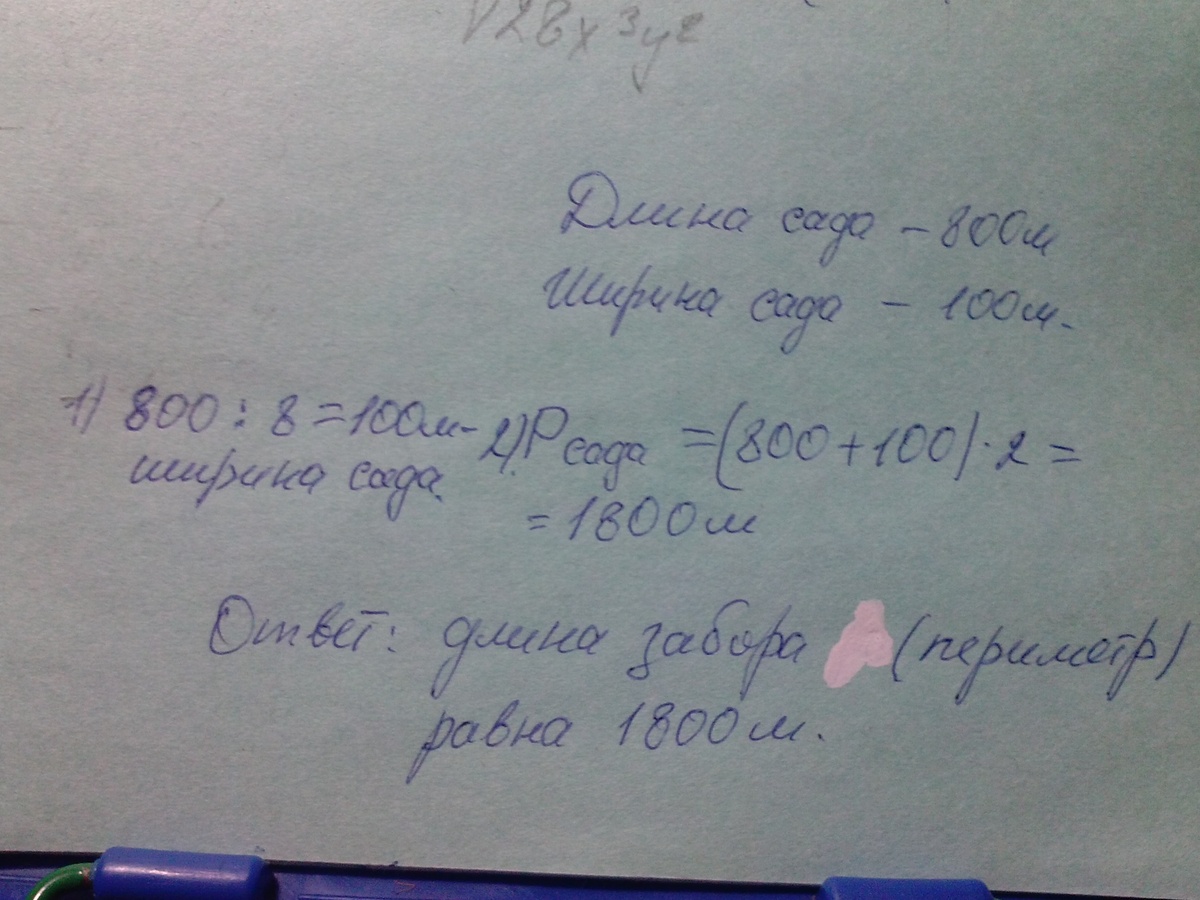 √28x³y²
Длина сада – 800м
Ширина сада – 100м.
1) 800 : 8 = 100м –
ширина сада.
2) P сада = (800 + 100) · 2 =
= 1800м
Ответ: длина забора (периметр)
равна 1800м.